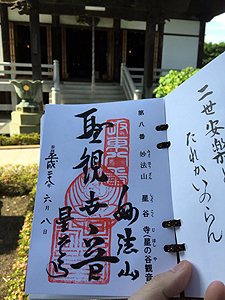 二世安楽
たれかいのらん
第八番 妙法山 星谷寺(星の谷観音
妙法山
聖観世音
星谷寺
六月八日